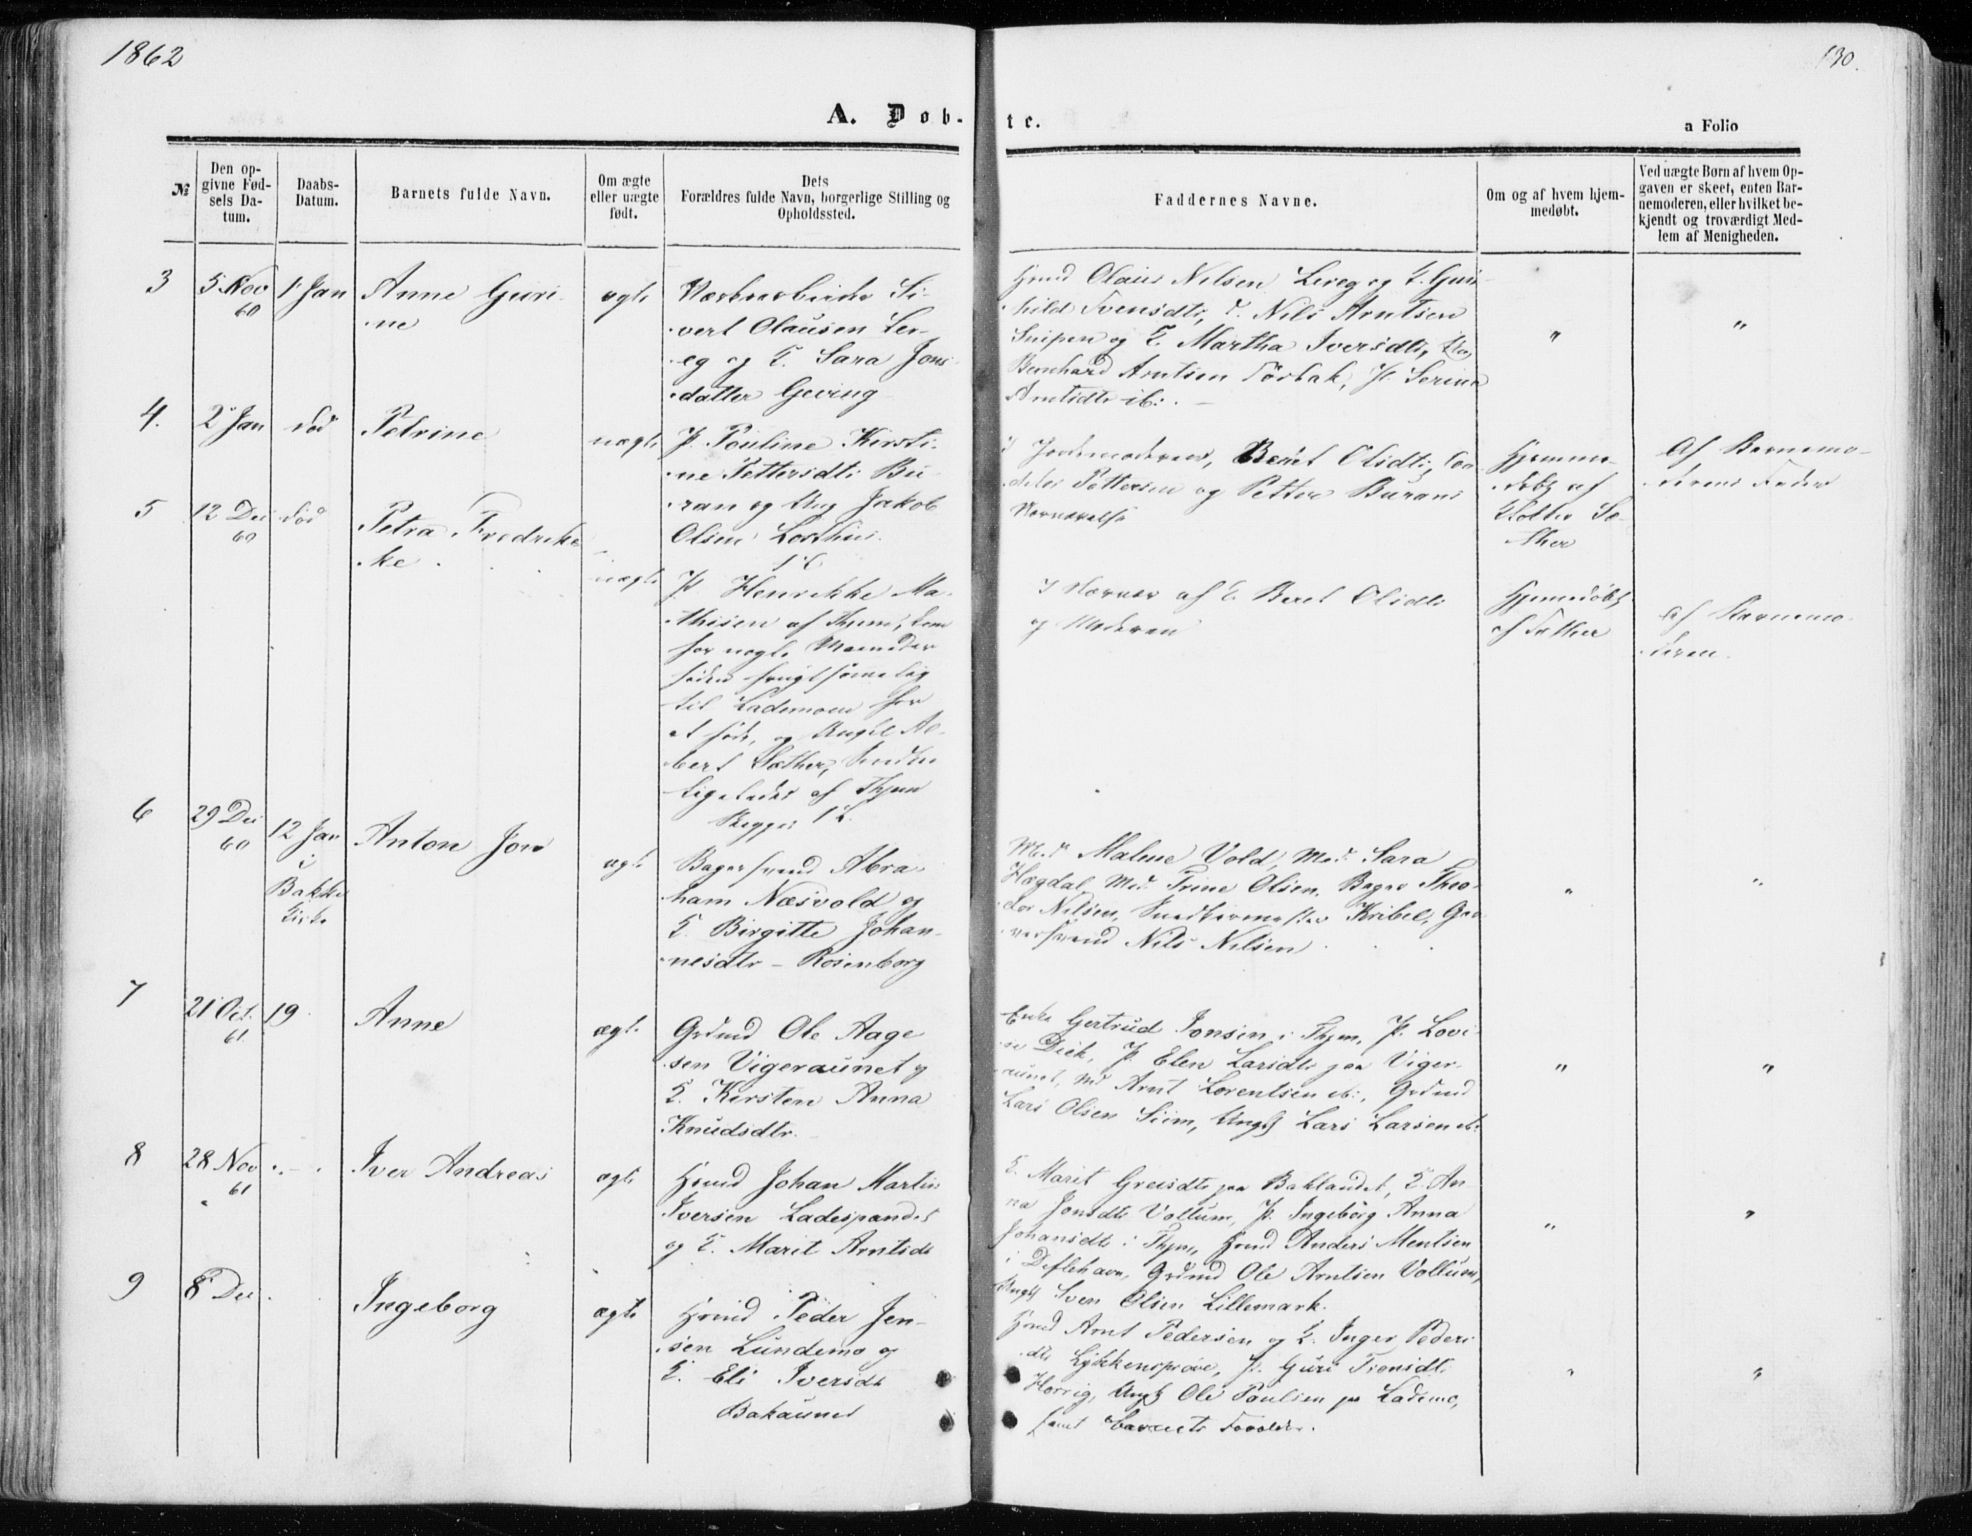 1862
130.
A. Døb-
te.
a Folio
№
Den op-
givne Fød-
sels Da-
tum.
Daabs-
Datum.
Barnets fulde Navn.
Om ægte
eller uægte
født.
Dets
Forældres fulde Navn, borgerlige Stilling og
Opholdssted.
Faddernes Navne.
Om og af hvem hjem-
medøbt.
Ved uægte Børn af hvem Op-
gaven er skeet, enten Bar-
nemoderen, eller hvilket be-
kjendt og troværdigt Med-
lem af Menigheden.
3
5 Nov
60
1 Jan
Anne Guri-
ne
ægte
Si-
vert Olausen Ler-
eg og E. Sara Jons
datter Geving
Olaus Nilsen Lereg og E. Gun-
hild Svensdtr, Nils Arntsen
Snipen og E. Martha Iversdtr,
Bernhard Arntsen Torbak, P. Serine
Arntsdtr ib.
"
"
4.
2 Jan
død
Petrine
uægte
P. Pauline Kirsti-
ne Pettersdtr Bu-
ran og Ung Jakob
Olsen
Jordemoderen, Beret Olsdtr,
Pettersen og Petter Burans
Nærværelse
Hjemme-
døbt af
Sæ-
ther
Af Barnemo-
derens Fader
5
12 Dec
60
død
Petra Fredrikke
ke
uægte
P. Henrikke Ma-
thisen af Thjem, kom
for nogle Maaneder
siden frugtsommelig
til Lademoen for
at føde, og Ungk Al-
bert Sæther, Snedker
ligeledes af Thjem
Begges 1 L.
I Nærvær af E. Beret Olsdtr
og Moderen
Hjemmedøbt
af Sæther
Af Barnemo-
deren.
6
29 Dec
60
12 Jan
i
Bakke
Kirke
Anton Jon
ægte
Bagersvend Abra-
ham Næsvold og
E. Birgitte Johan-
nesdtr - Rosenborg
Mad. Malene Vold, Mad. Sara
Hægdal, Mad. Trine Olsen, Bager Theo-
dor Nilsen, Snedkermester Kribel, Gar-
versvend Nils Nilsen
"
"
7
21 Oct.
61
19
Anne
ægte
Grdmd Ole Aage
sen Vigeraunet og
E. Kirsten Anna
Knudsdtr.
Enke Gertrud Jonsen i Thjem, P. Lovi-
se Dick, P. Elen Larsdtr paa Viger-
aunet, Md Arnt Lorentsen ib., Grdmd
Lars Olsen Siim, Ungk Lars Larsen ib.
"
"
8
28 Nov
61
Iver Andreas
ægte
Hsmd Johan Martin
Iversen Ladespandet
og E. Marit Arntsdtr
E. Marit paa Baklandet, E. An-
na Jonsdtr Vollum, P. Ingeborg Anna
Johansdtr i Thjem, Hsmd Anders Mentsen
i Devlehavn, Grdmd Ole Arntsen Vollum,
Ungk Sven Olsen Lillemark.
"
"
9
8 Dec
Ingeborg
ægte
Hsmd Peder Jen-
sen Lundemo og
E. Eli Iversdtr
Bakaunet
Hsmd Arnt Pedersen og E. Inger Peders
dtr Lykkensprøve, P. Guri Tronsdtr
Horrig, Ungk Ole Paulsen paa Lademo,
samt Barnets Forældre.
"
"